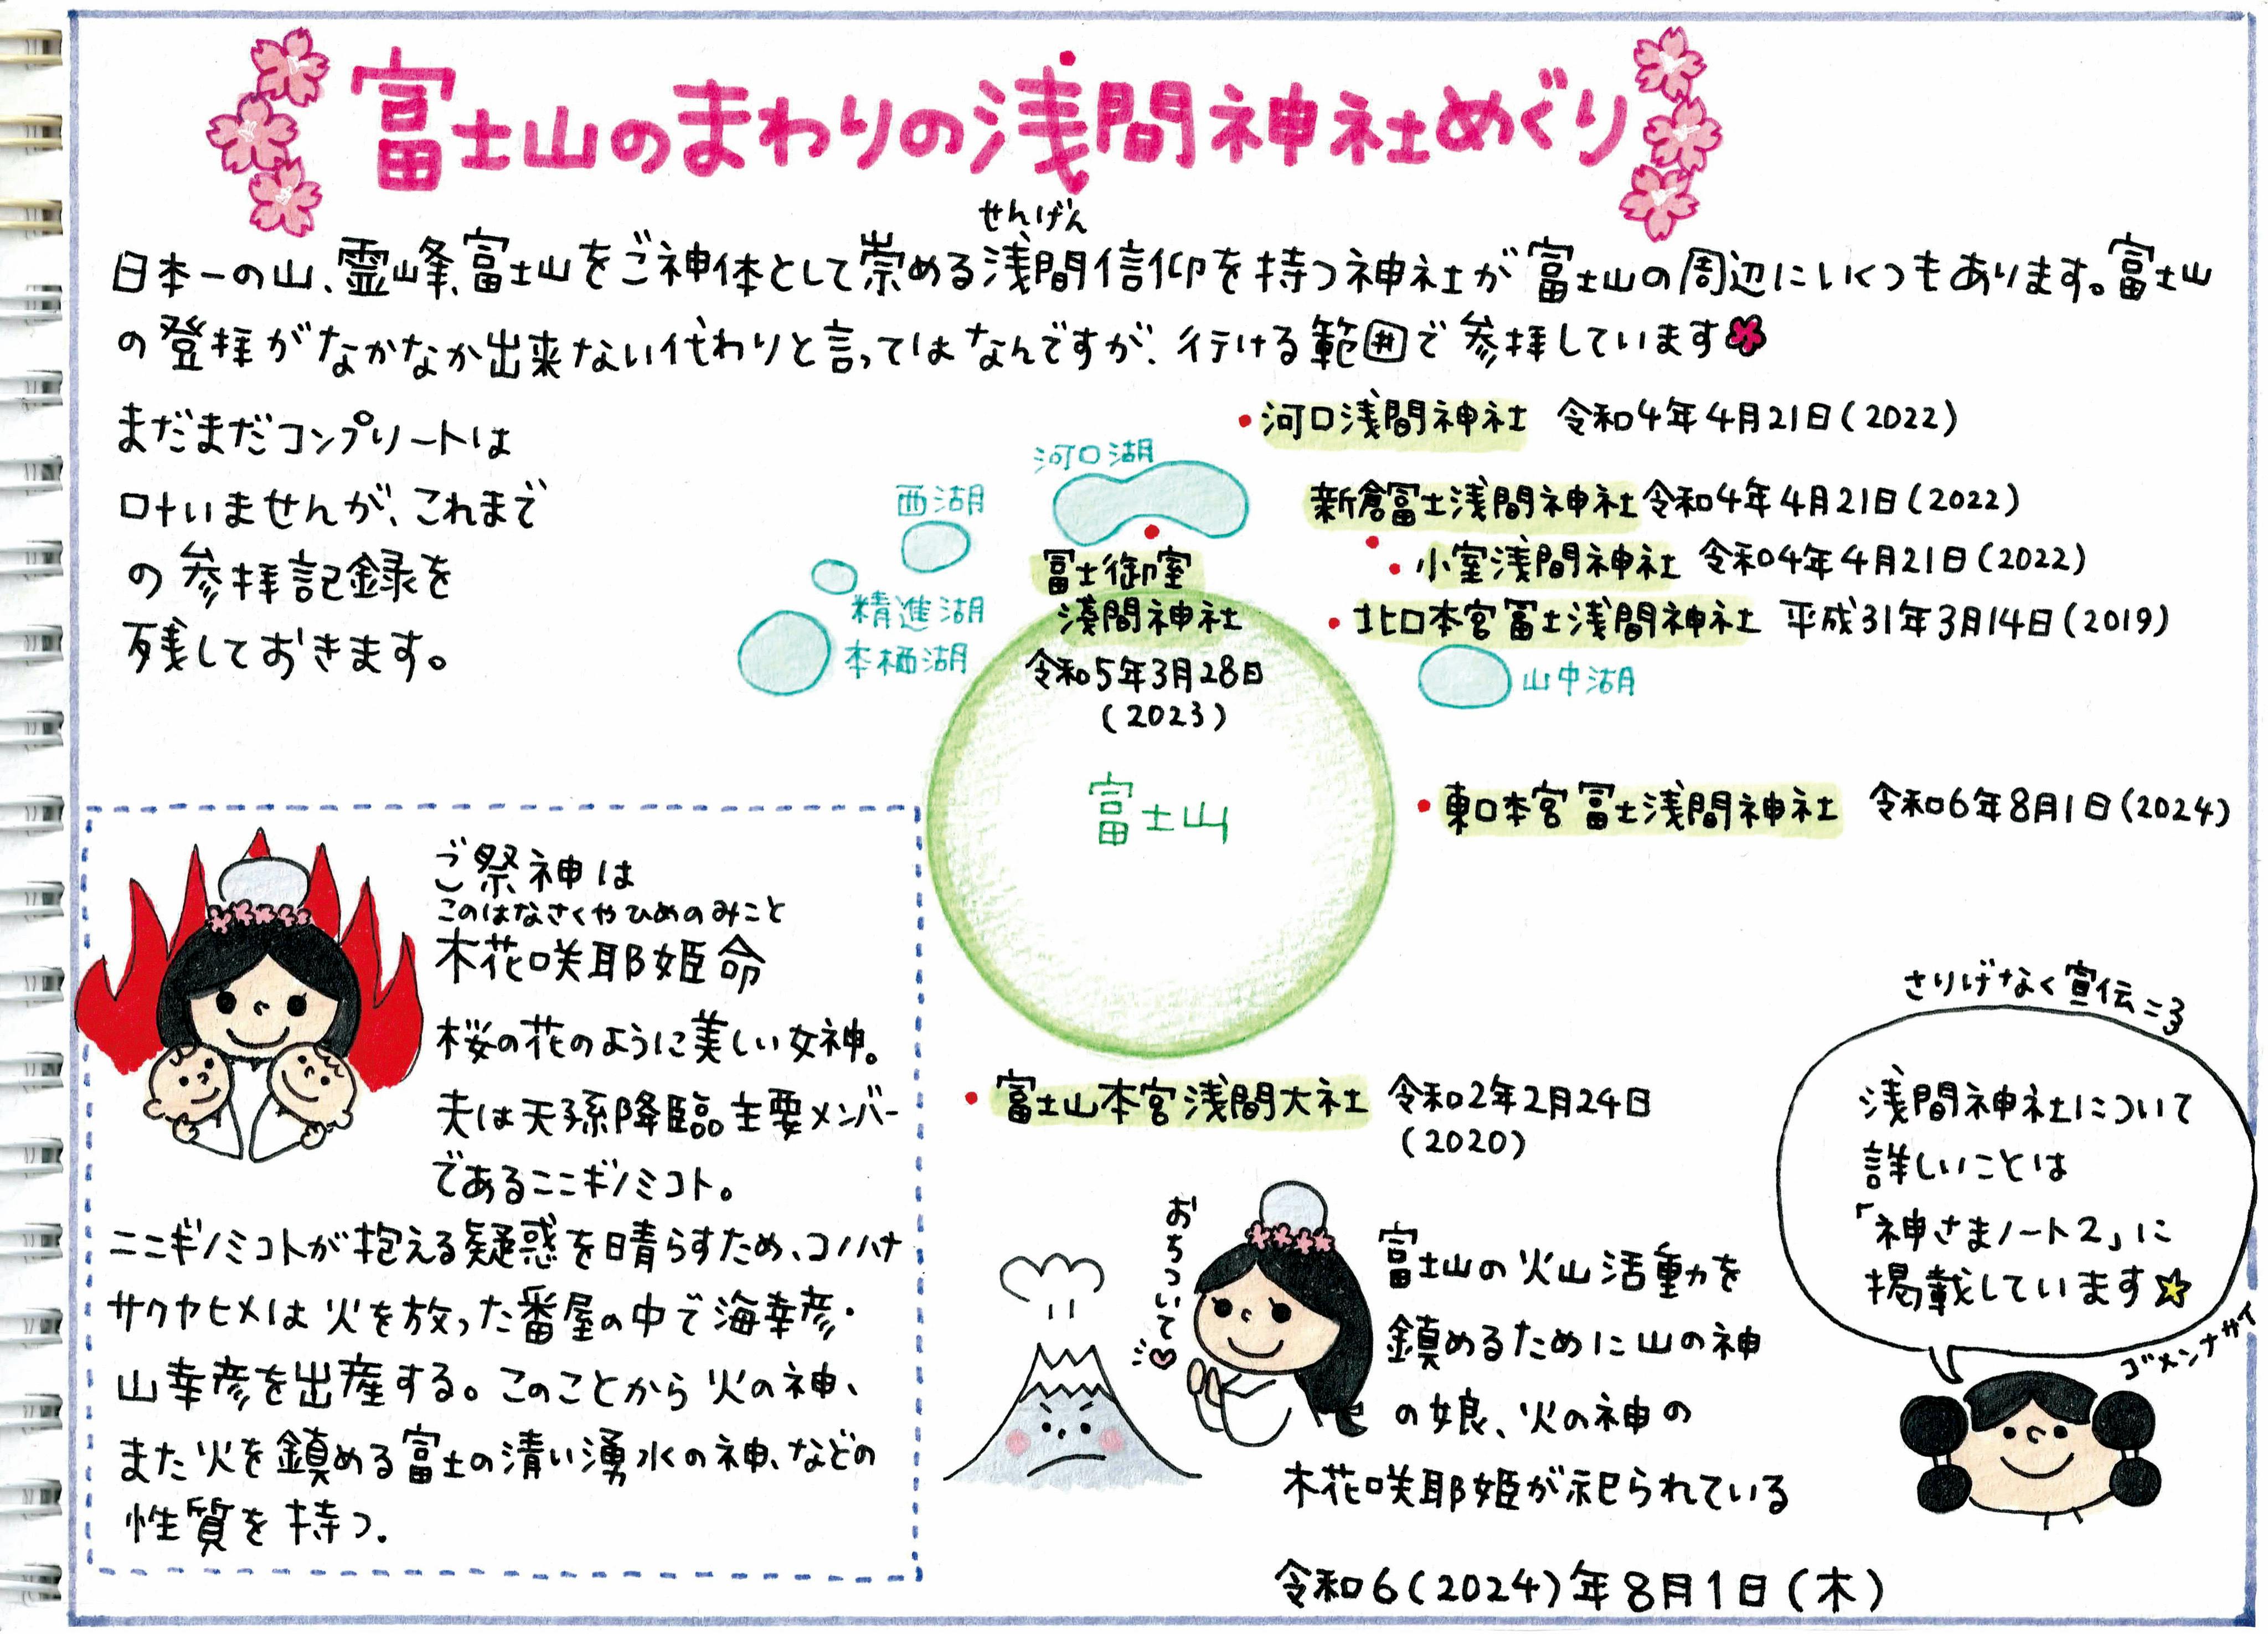 富士山のまわりの浅間神社めぐり
せんげん
日本一の山、霊峰、富士山をご神体として崇める浅間信仰を持つ神社が富士山の周辺にいくつもあります。富士山
の登拝がなかなか出来ない代わりと言ってはなんですが、行ける範囲で参拝しています
まだまだコンプリートは
叶いませんが、これまで
の参拝記録を
残しておきます。
・河口浅間神社 令和4年4月21日(2022)
河口湖
西湖
新倉富士浅間神社 令和4年4月21日(2022)
・小室浅間神社 令和4年4月21日(2022)
・北口本宮冨士浅間神社 平成31年3月14日(2019)
冨士御室
浅間神社
令和5年3月28日
(2023)
精進湖
本栖湖
山中湖
富士山
・東口本宮冨士浅間神社 令和6年8月1日(2024)
・富士山本宮浅間大社 令和2年2月24日
(2020)
ご祭神は
このはなさくやひめのみこと
木花咲耶姫命
桜の花のように美しい女神。
夫は天孫降臨主要メンバー
であるニニギノミコト。
ニニギノミコトが抱える疑惑を晴らすため、コノハナ
サクヤヒメは火を放った番屋の中で海幸彦・
山幸彦を出産する。このことから火の神、
また火を鎮める富士の清い湧水の神、などの
性質を持つ。
おちついて
富士山の火山活動を
鎮めるために山の神
の娘、火の神の
木花咲耶姫が祀られている
さりげなく宣伝
浅間神社について
詳しいことは
「神さまノート2」に
掲載しています☆
ゴメンナサイ
令和6(2024)年8月1日(木)